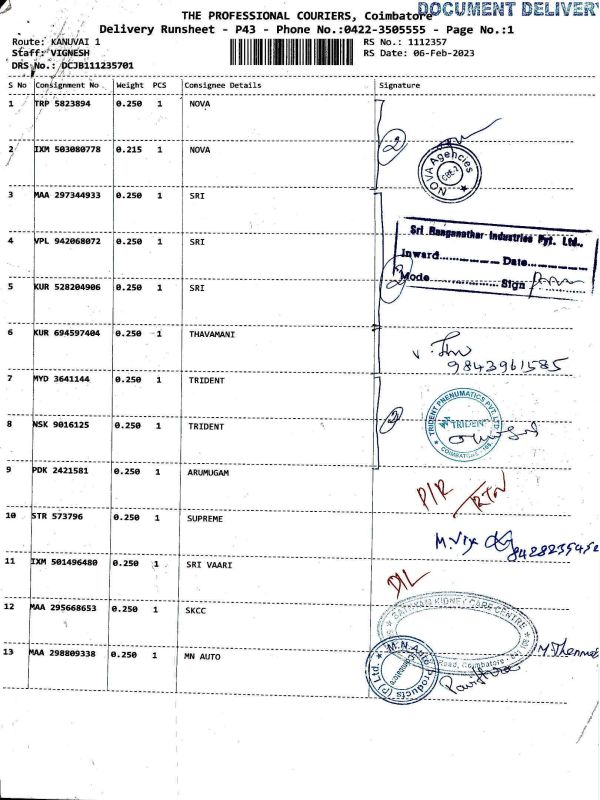 DOCUMENT DELIVERY
THE PROFESSIONAL COURIERS, Coimbatore
Delivery Runsheet - P43 - Phone No.:0422-3505555 - Page No.:1
Route: KANUVAI 1
RS No.: 1112357
Staff: VIGNESH
RS Date: 06-Feb-2023
DRS No.: DCJB111235701
S No Consignment No Weight PCS Consignee Details Signature
1 TRP 5823894 0.250 1 NOVA
2 IXM 503080778 0.215 1 NOVA
2
NOVA Agencies
CBE-7
3 MAA 297344933 0.250 1 SRI
4 VPL 942068072 0.250 1 SRI
Sri Ranganathar Industries Pvt. Ltd.,
Inward.................Date.................
Mode.................Sign.................
3
5 KUR 528204906 0.250 1 SRI
6 KUR 694597404 0.250 1 THAVAMANI
9843961585
7 MYD 3641144 0.250 1 TRIDENT
8 NSK 9016125 0.250 1 TRIDENT
2
TRIDENT PNEUMATICS PVT. LTD.
TRIDENT
COIMBATORE
9 PDK 2421581 0.250 1 ARUMUGAM
P/R
RTN
10 STR 573796 0.250 1 SUPREME
M.Vijx
8428235452
11 IXM 501496480 0.250 1 SRI VAARI
D/L
12 MAA 295668653 0.250 1 SKCC
KIDNEY CARE CENTRE
Road, Coimbatore
13 MAA 298809338 0.250 1 MN AUTO
M.N. Auto Products (P) Ltd.
Pavithra